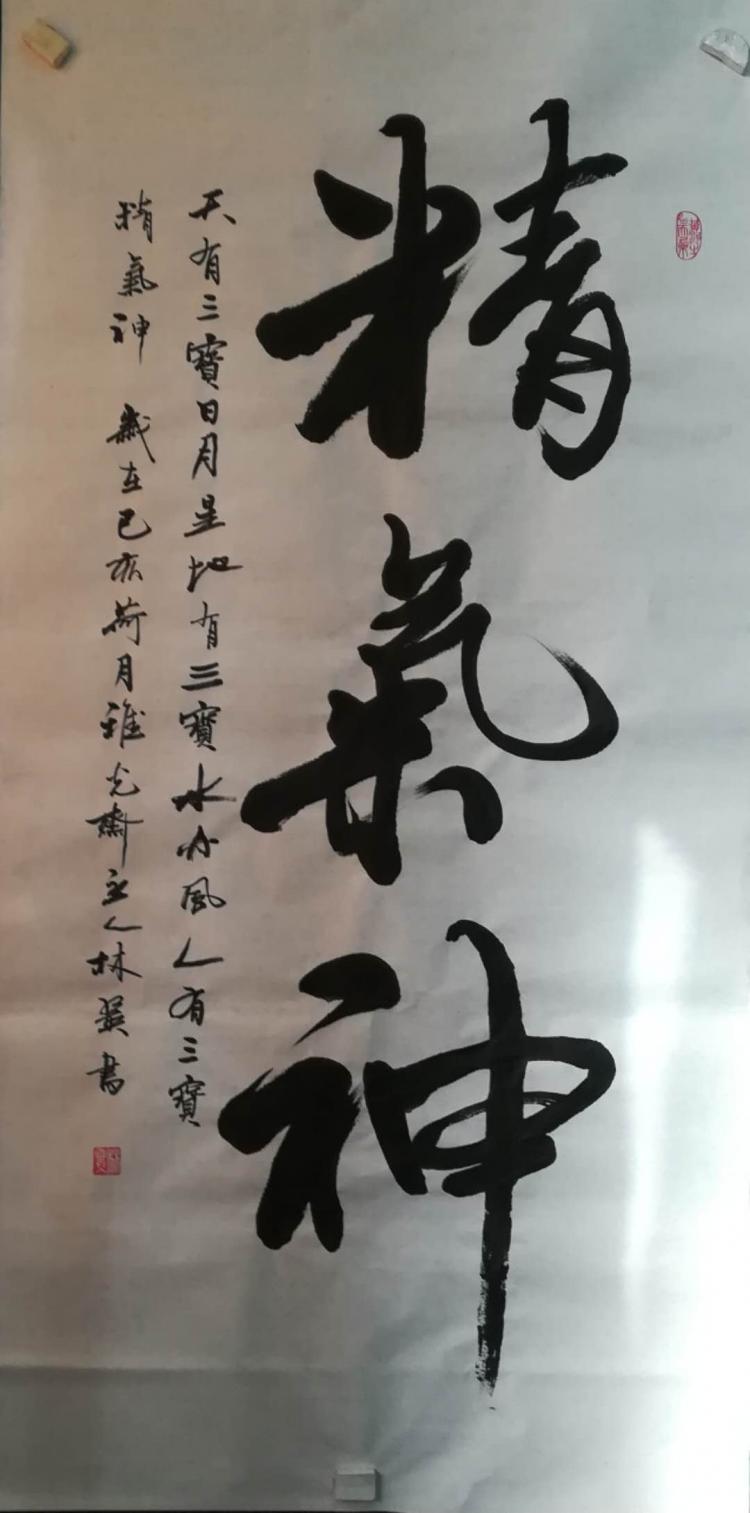 精氣神
天有三寳日月星地有三寳水火風人有三寳
精氣神 歲在己亥荷月雅光齋主人林昊書